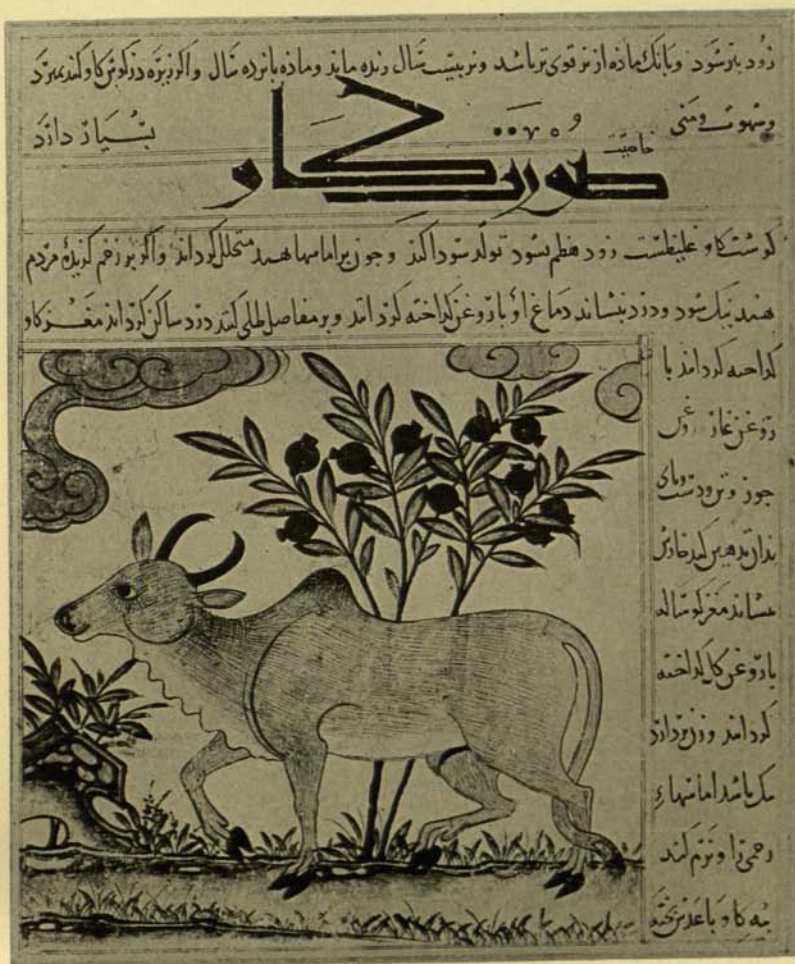 زود بازشود و بانک ماده از نر قوی تر باشد و نر بیست سال زنده ماند و ماده پانزده سال و اکر نیزه در کوش کاو کنند بمیرد
و شهوت و منی بسیار دارد
خاصیت
صورت کاو
کوشت کاو غلیظست زود هظم نشود تولد سودا کند و چون بر اماسها نهند متحلل کرداند و اکر بر زخم کزیدۀ مردم
نهند نیک شود و درد بنشاند دماغ او با روغن کداخته کردانند و بر مفاصل طلی کنند درد ساکن کرداند مغز کاو
کداخته کردانند با
روغن غار
جوز و بر دست و پای
بدان تدهین کنند خارش
بنشاند مغز کوساله
با روغن کل کداخته
کردانند و زن بردارد
نیک باشد اماسهاء
رحمی را و نرم کند
پیه کاو با